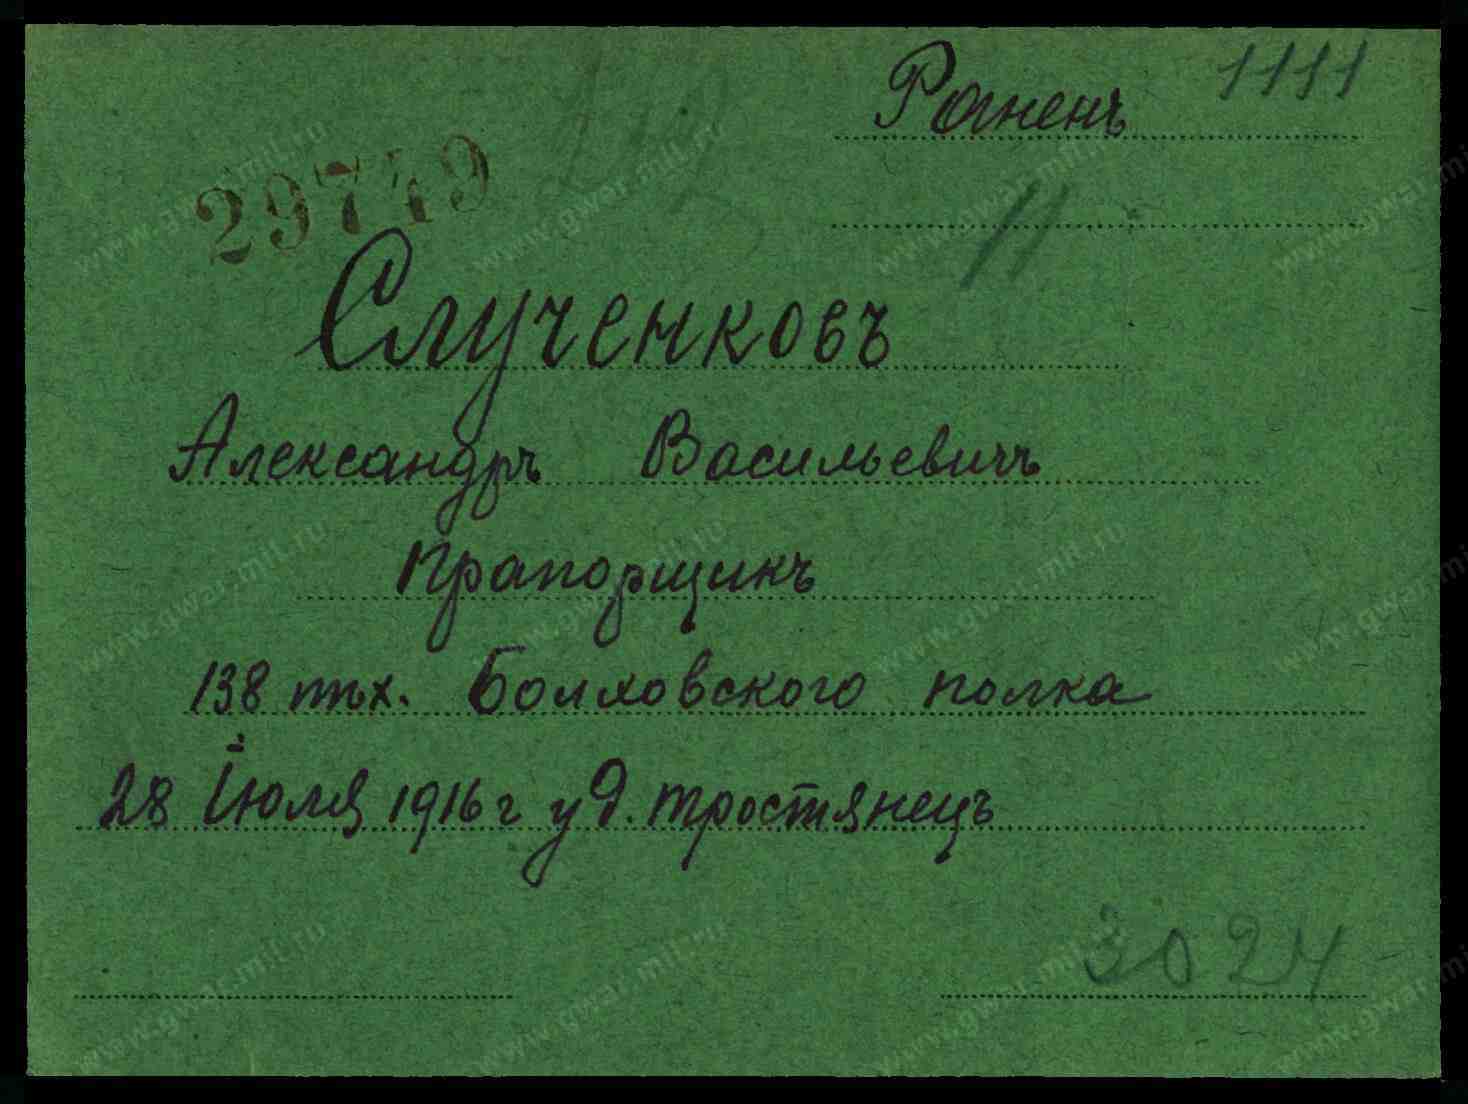 Раненъ 1111
29749
11
Слученковъ
Александръ Васильевичъ
Прапорщикъ
138 пѣх. Болховского полка
28 Июля 1916 г у д. Тростянецъ
3024
www.gwar.mil.ru